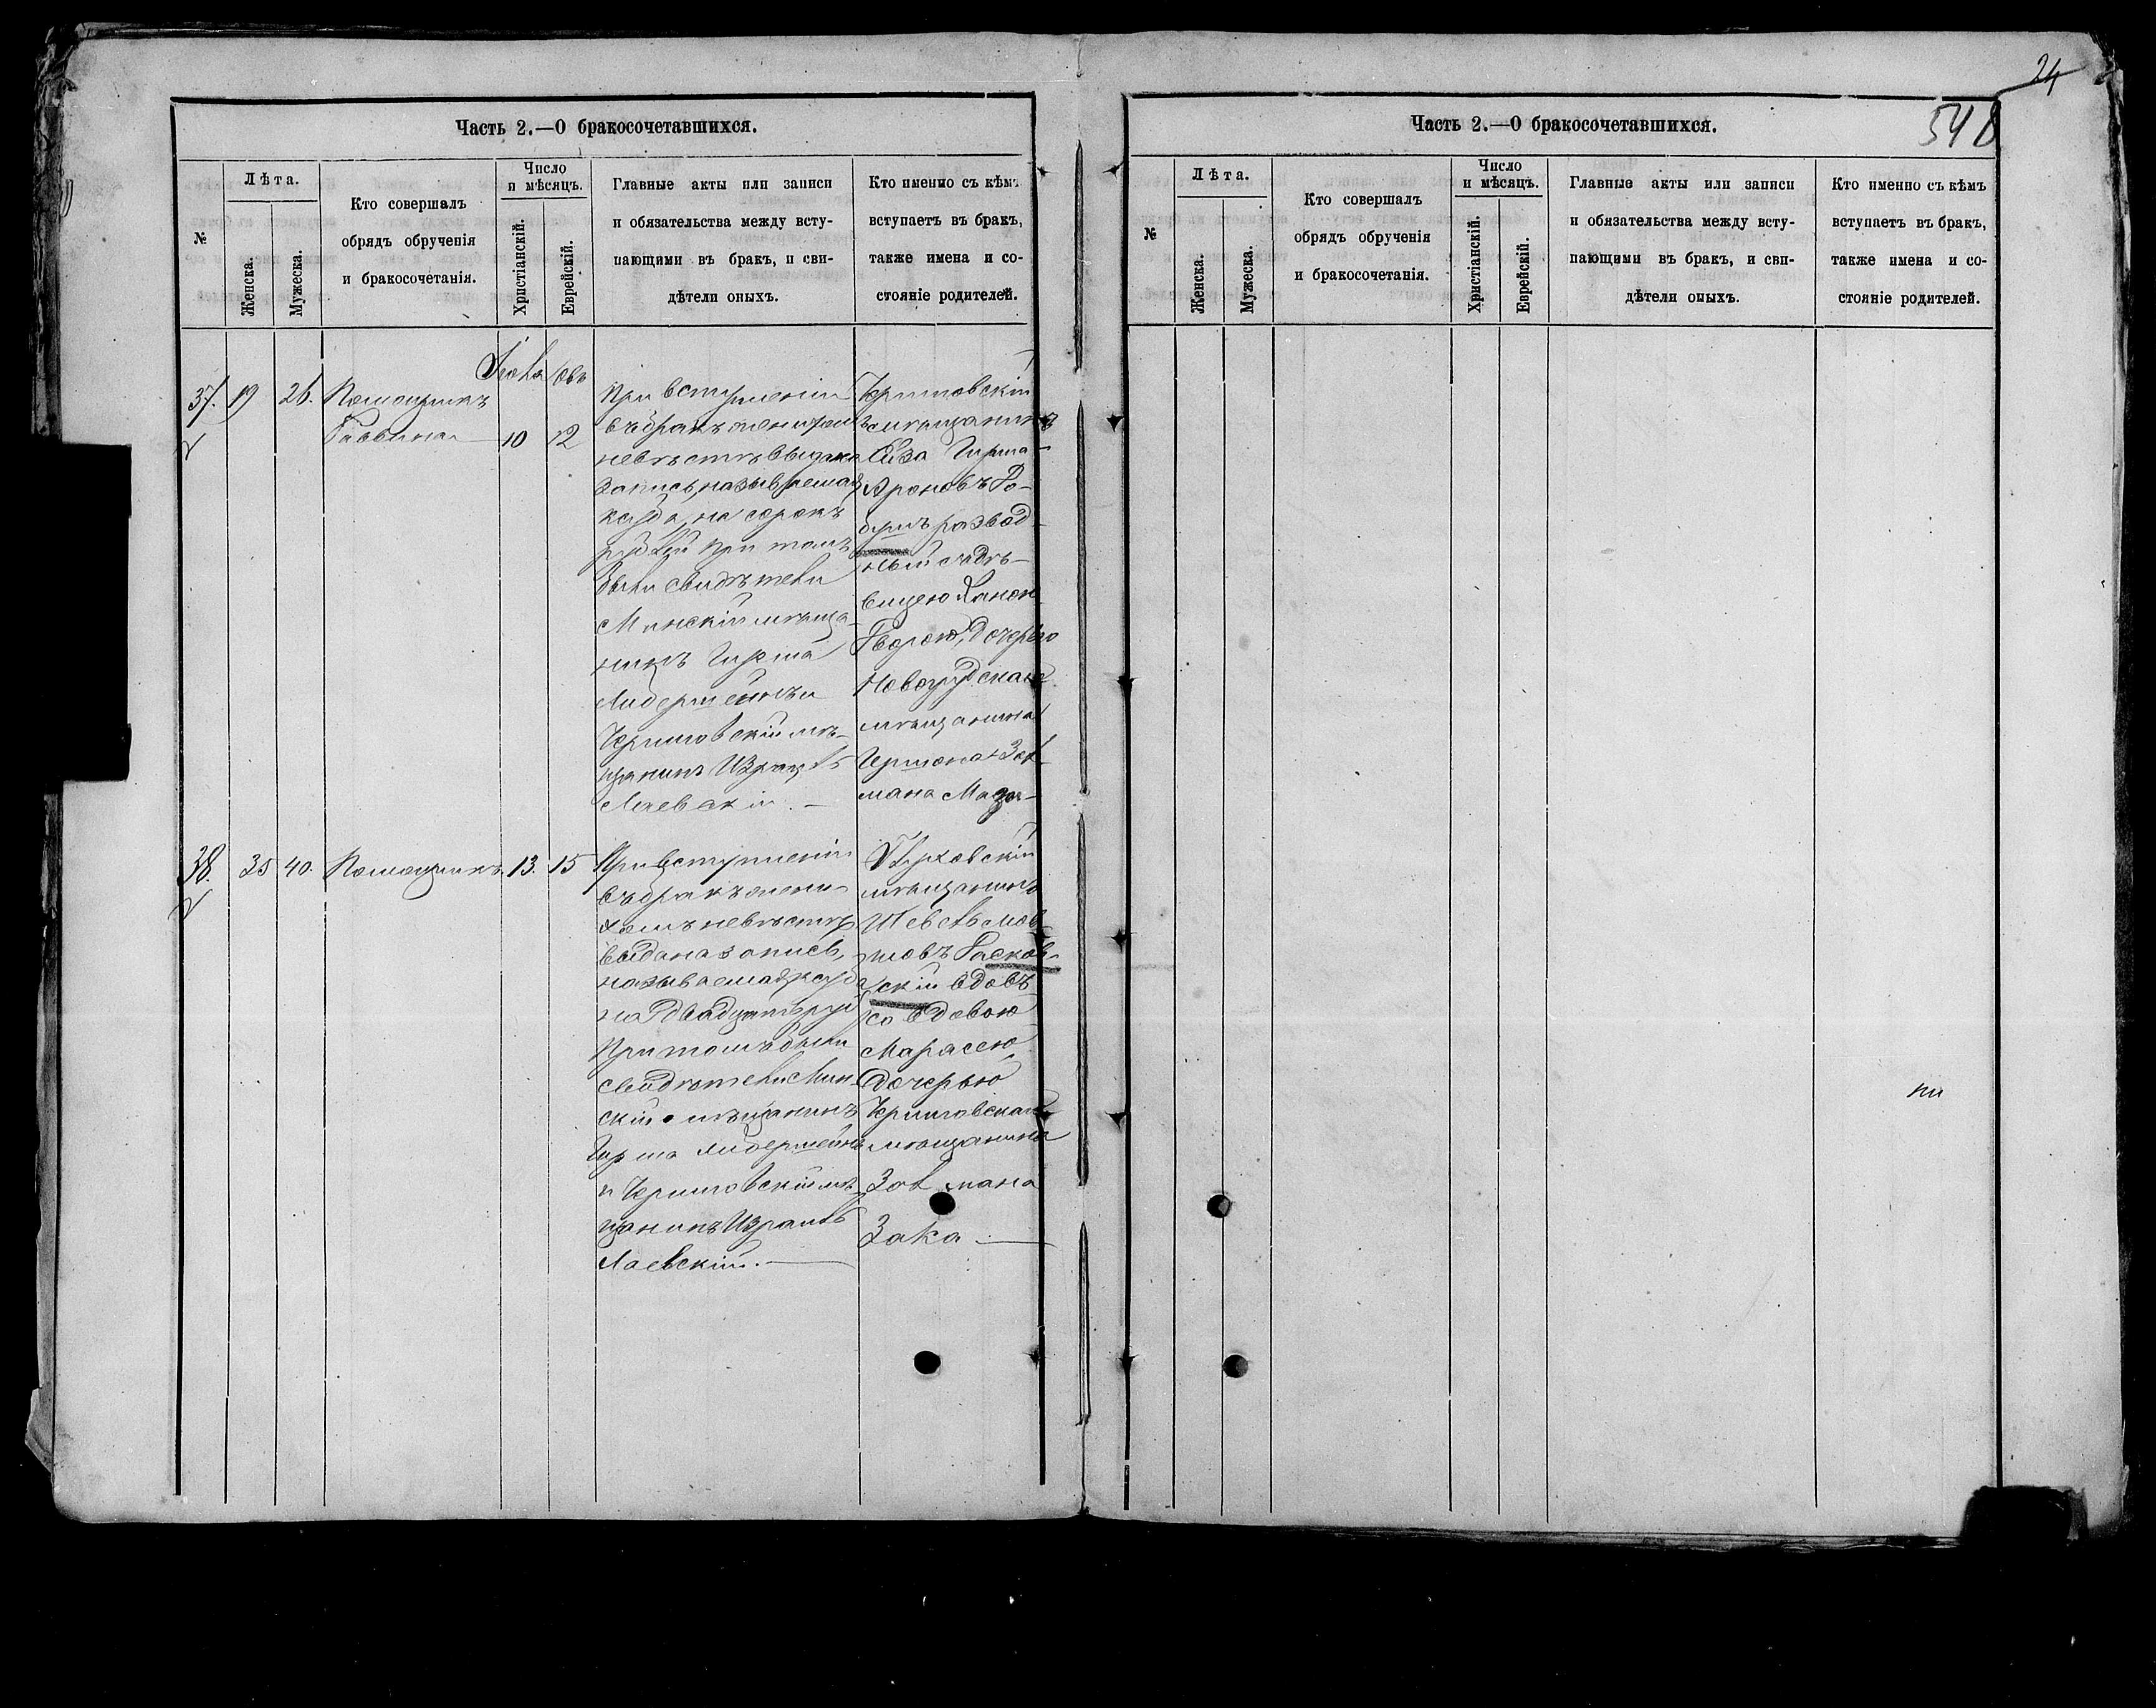 24
Часть 2.—О бракосочетавшихся.
№
Лѣта.
Женска.
Мужеска.
Кто совершалъ
обрядъ обрученія
и бракосочетанія.
Число
и мѣсяцъ.
Христіанскій.
Еврейскій.
Главные акты или записи
и обязательства между всту-
пающими въ бракъ, и сви-
дѣтели оныхъ.
Кто именно съ кѣмъ
вступаетъ въ бракъ,
также имена и со-
стояніе родителей.
37. 19 26. Помощникъ
Раввина 10 12
При вступленіи
въ бракъ женихомъ
невѣстѣ выдана
запись, называемая
ксуба, на сорокъ
рублей при томъ
были свидѣтели
Минскій мѣща-
нинъ Гирша
Либерменъ и
Черниговскій мѣ-
щанинъ Израиль
Лаевскій. —
Черниговскій
мѣщанинъ
Гирша
Ароновъ
развод-
ный съ дѣ-
вицею
дочерью
мѣщанина
Зал-
мана
38. 35 40. Помощникъ 13. 15
При вступленіи
въ бракъ жени-
хомъ невѣстѣ
выдана запись,
называемая ксуба
на двадцать руб
При томъ были
свидѣтели Мин-
скій мѣщанинъ
Гирша Либерменъ
и Черниговскій мѣ-
щанинъ Израиль
Лаевскій. —
мѣщанинъ
скій вдовъ
со вдовою
Марасею
дочерью
Черниговскаго
мѣщанина
Залмана
Зака —
Часть 2.—О бракосочетавшихся.
№
Лѣта.
Женска.
Мужеска.
Кто совершалъ
обрядъ обрученія
и бракосочетанія.
Число
и мѣсяцъ.
Христіанскій.
Еврейскій.
Главные акты или записи
и обязательства между всту-
пающими въ бракъ, и сви-
дѣтели оныхъ.
Кто именно съ кѣмъ
вступаетъ въ бракъ,
также имена и со-
стояніе родителей.